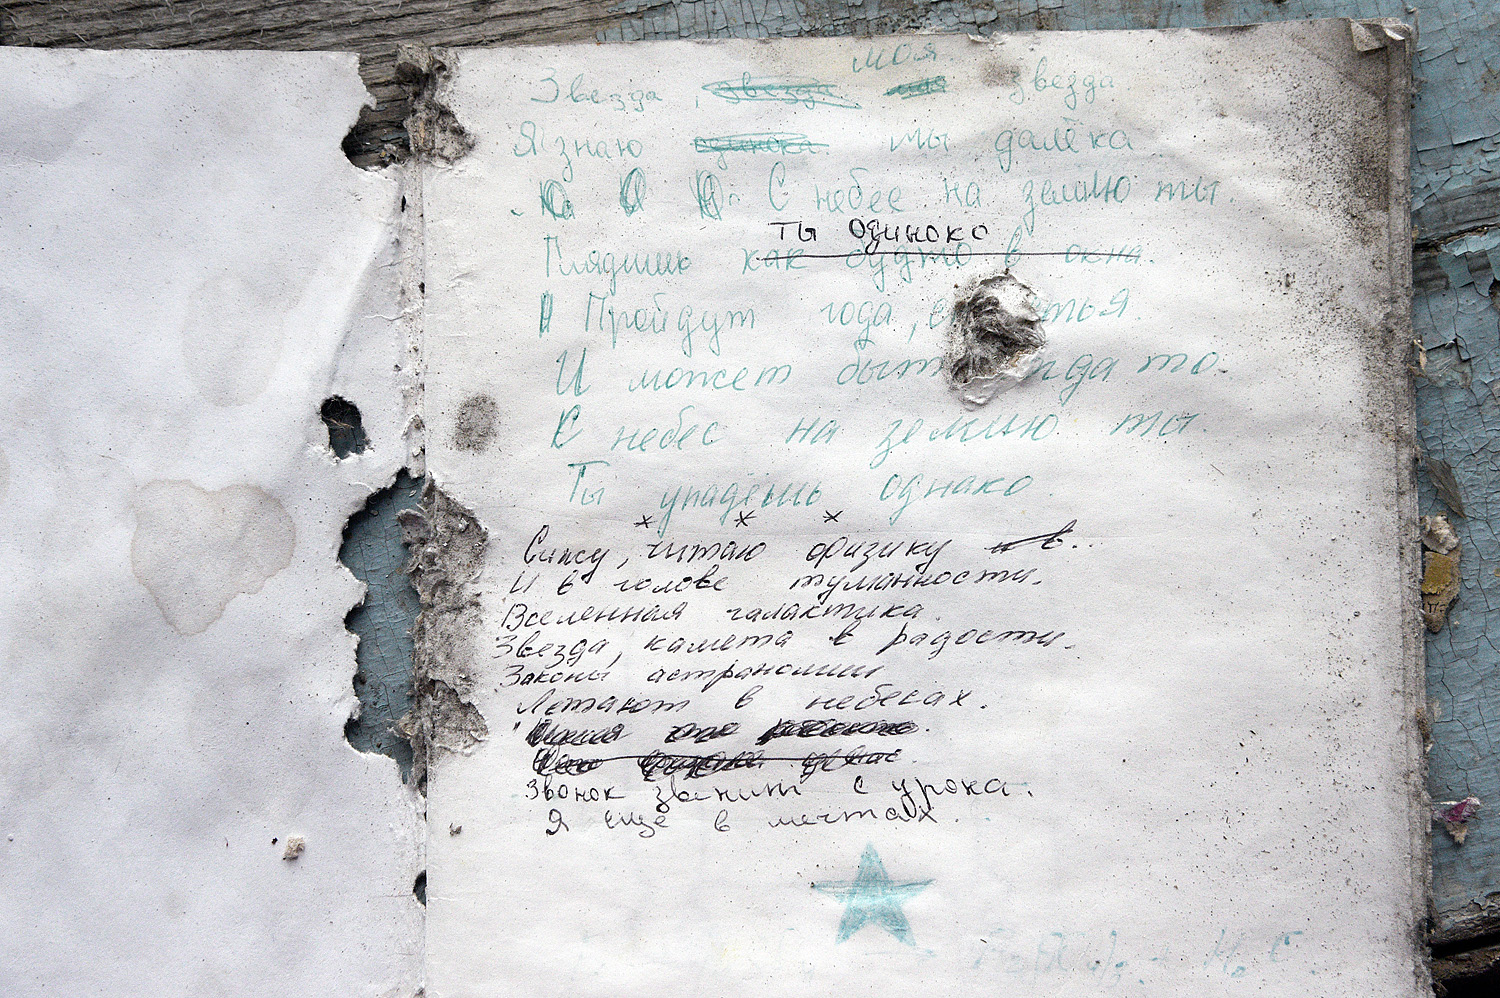 Звезда, звезда моя звезда
Я знаю одинока ты далёка
С небес на землю ты.
ты одиноко
Глядишь как будто в окна.
Пройдут года,
И может быть
С небес на землю ты.
Ты упадешь однако.
* * *
Сижу, читаю физику и в..
И в голове туманности.
Вселенная галактика.
Звезда, камета в радости.
Законы астраномии
Летают в небесах.
Звонок звенит с урока.
Я еще в мечтах.